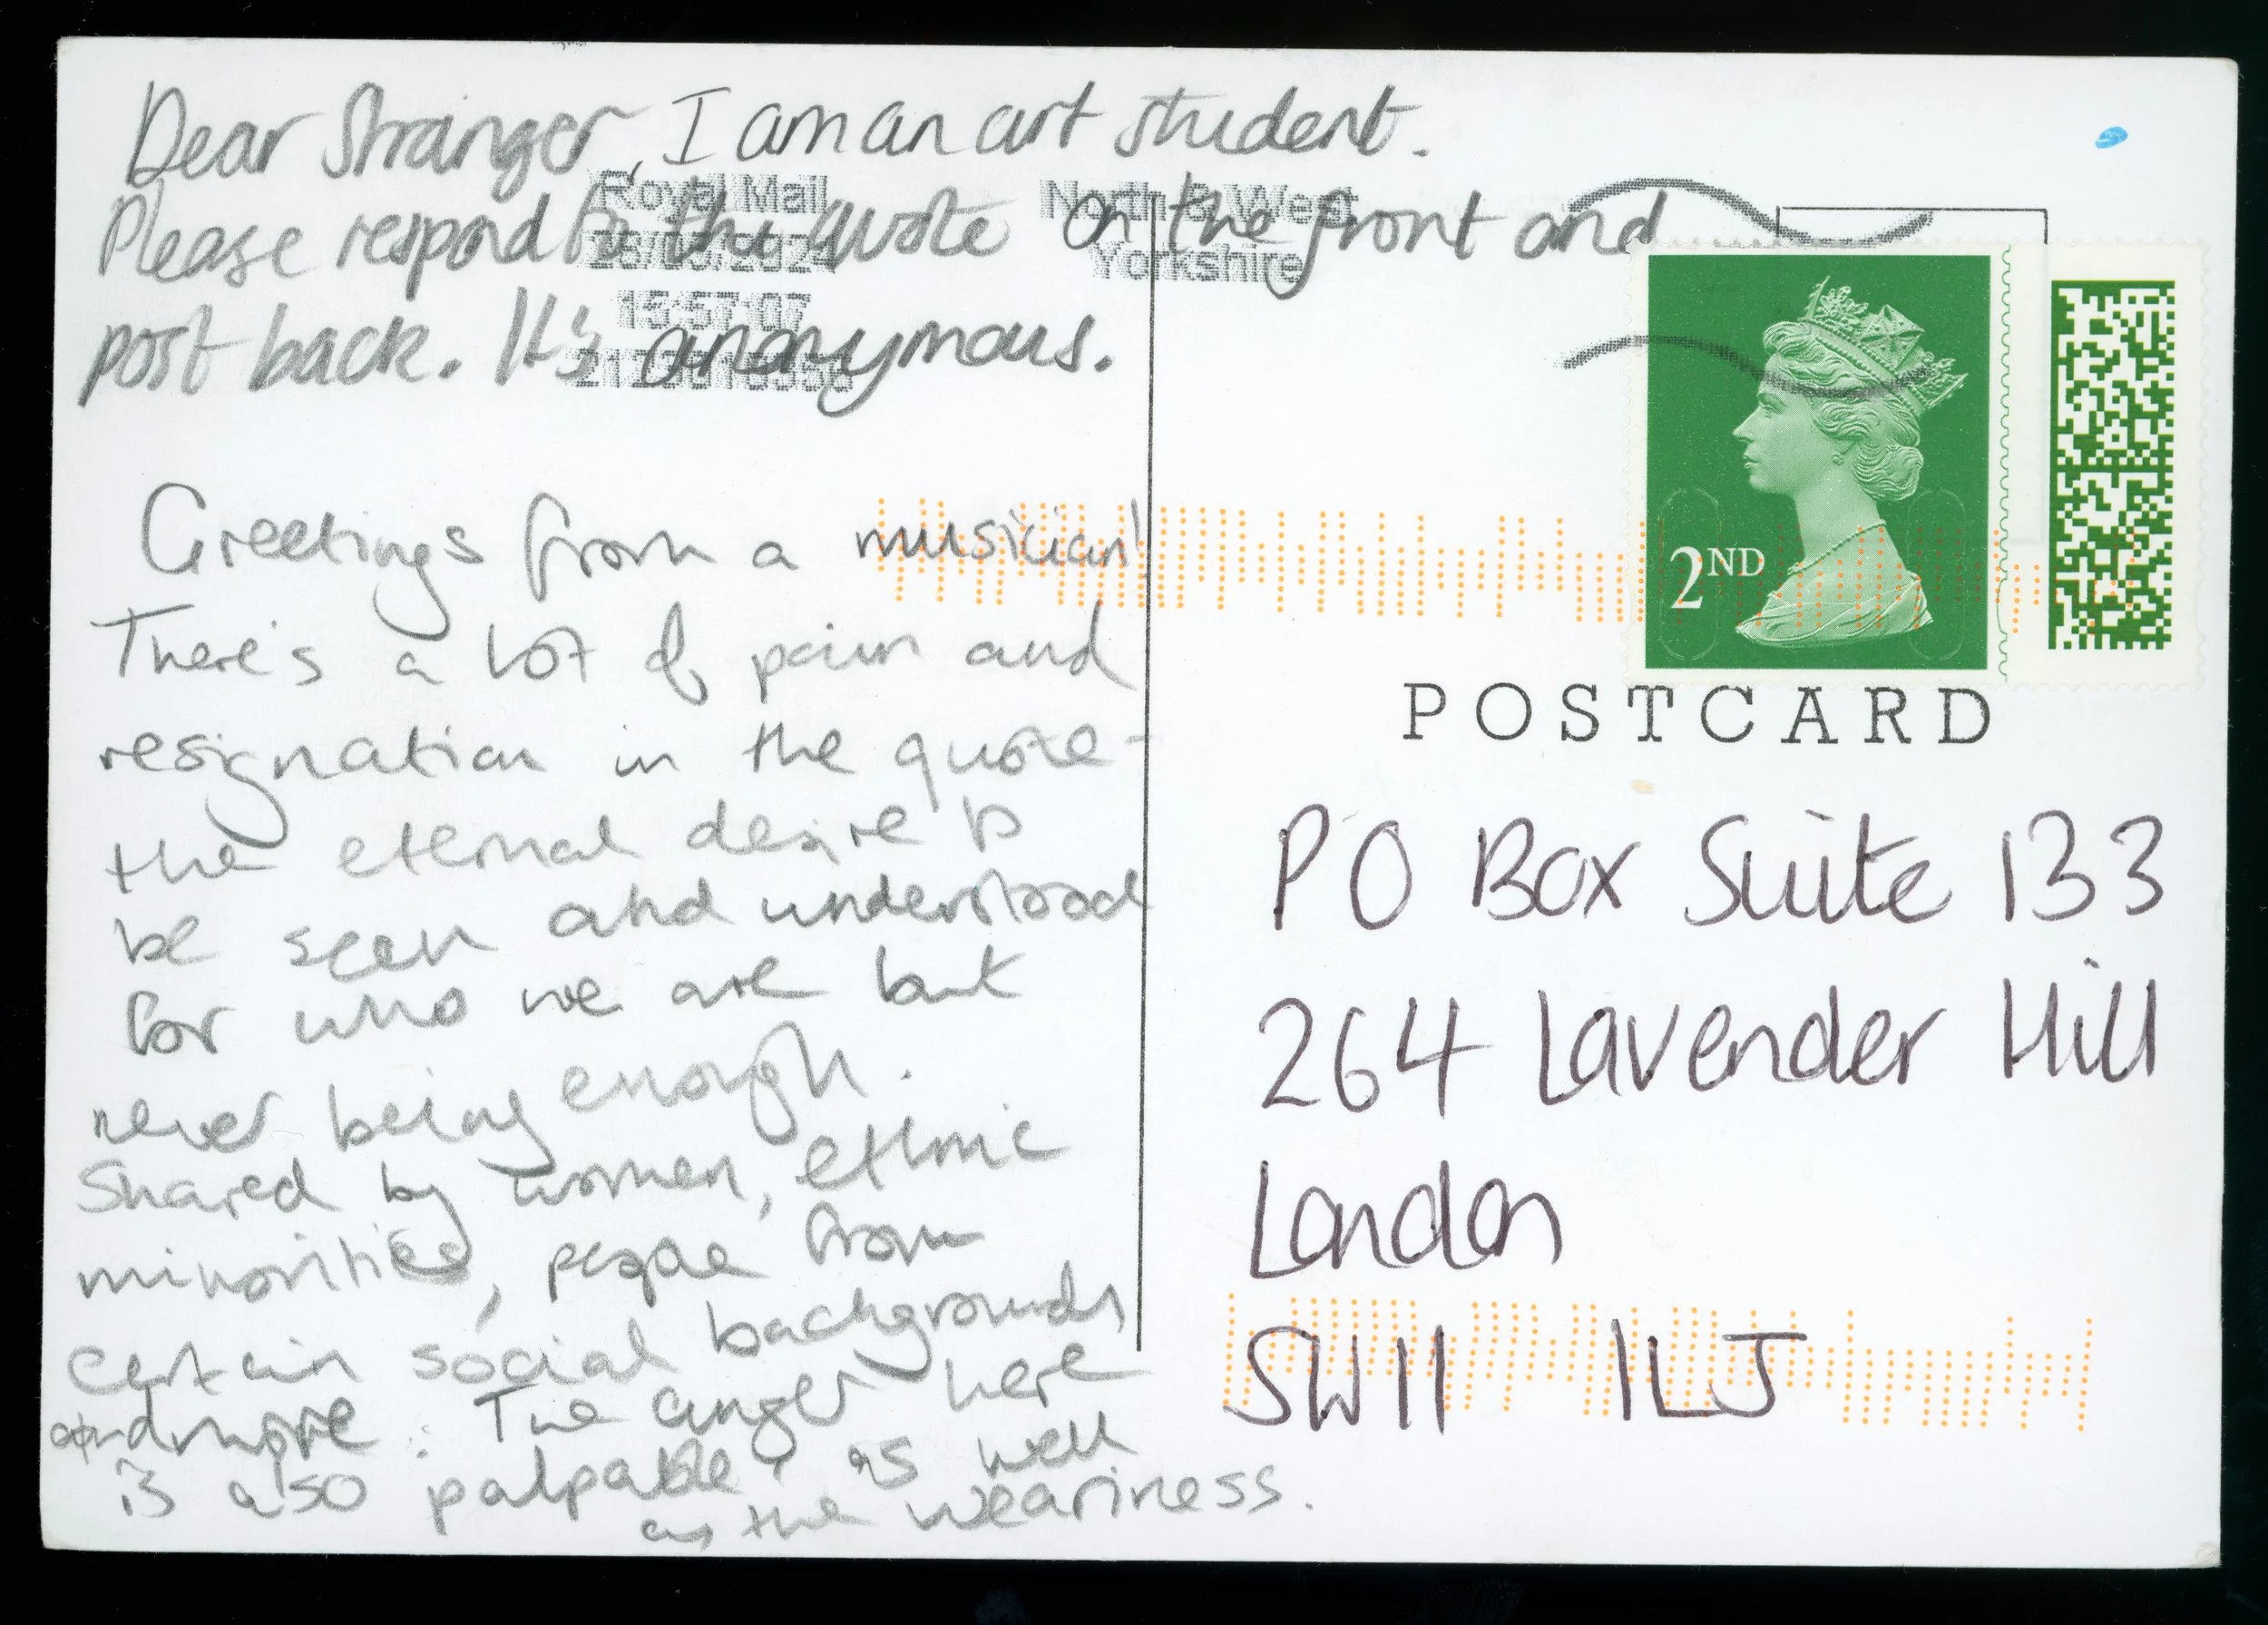 Dear Stranger, I am an art student.
Please respond to the quote on the front and
post back. It's anonymous.
Royal Mail
15:57:07
North & West
Yorkshire
2ND
POSTCARD
Greetings from a musician!
There's a lot of pain and
resignation in the quote -
the eternal desire to
be seen and understood
for who we are but
never being enough.
Shared by women, ethnic
minorities, people from
certain social backgrounds
and more. The anger here
is also palpable, as well
as the weariness.
PO Box Suite 133
264 Lavender Hill
London
SW11 1LJ